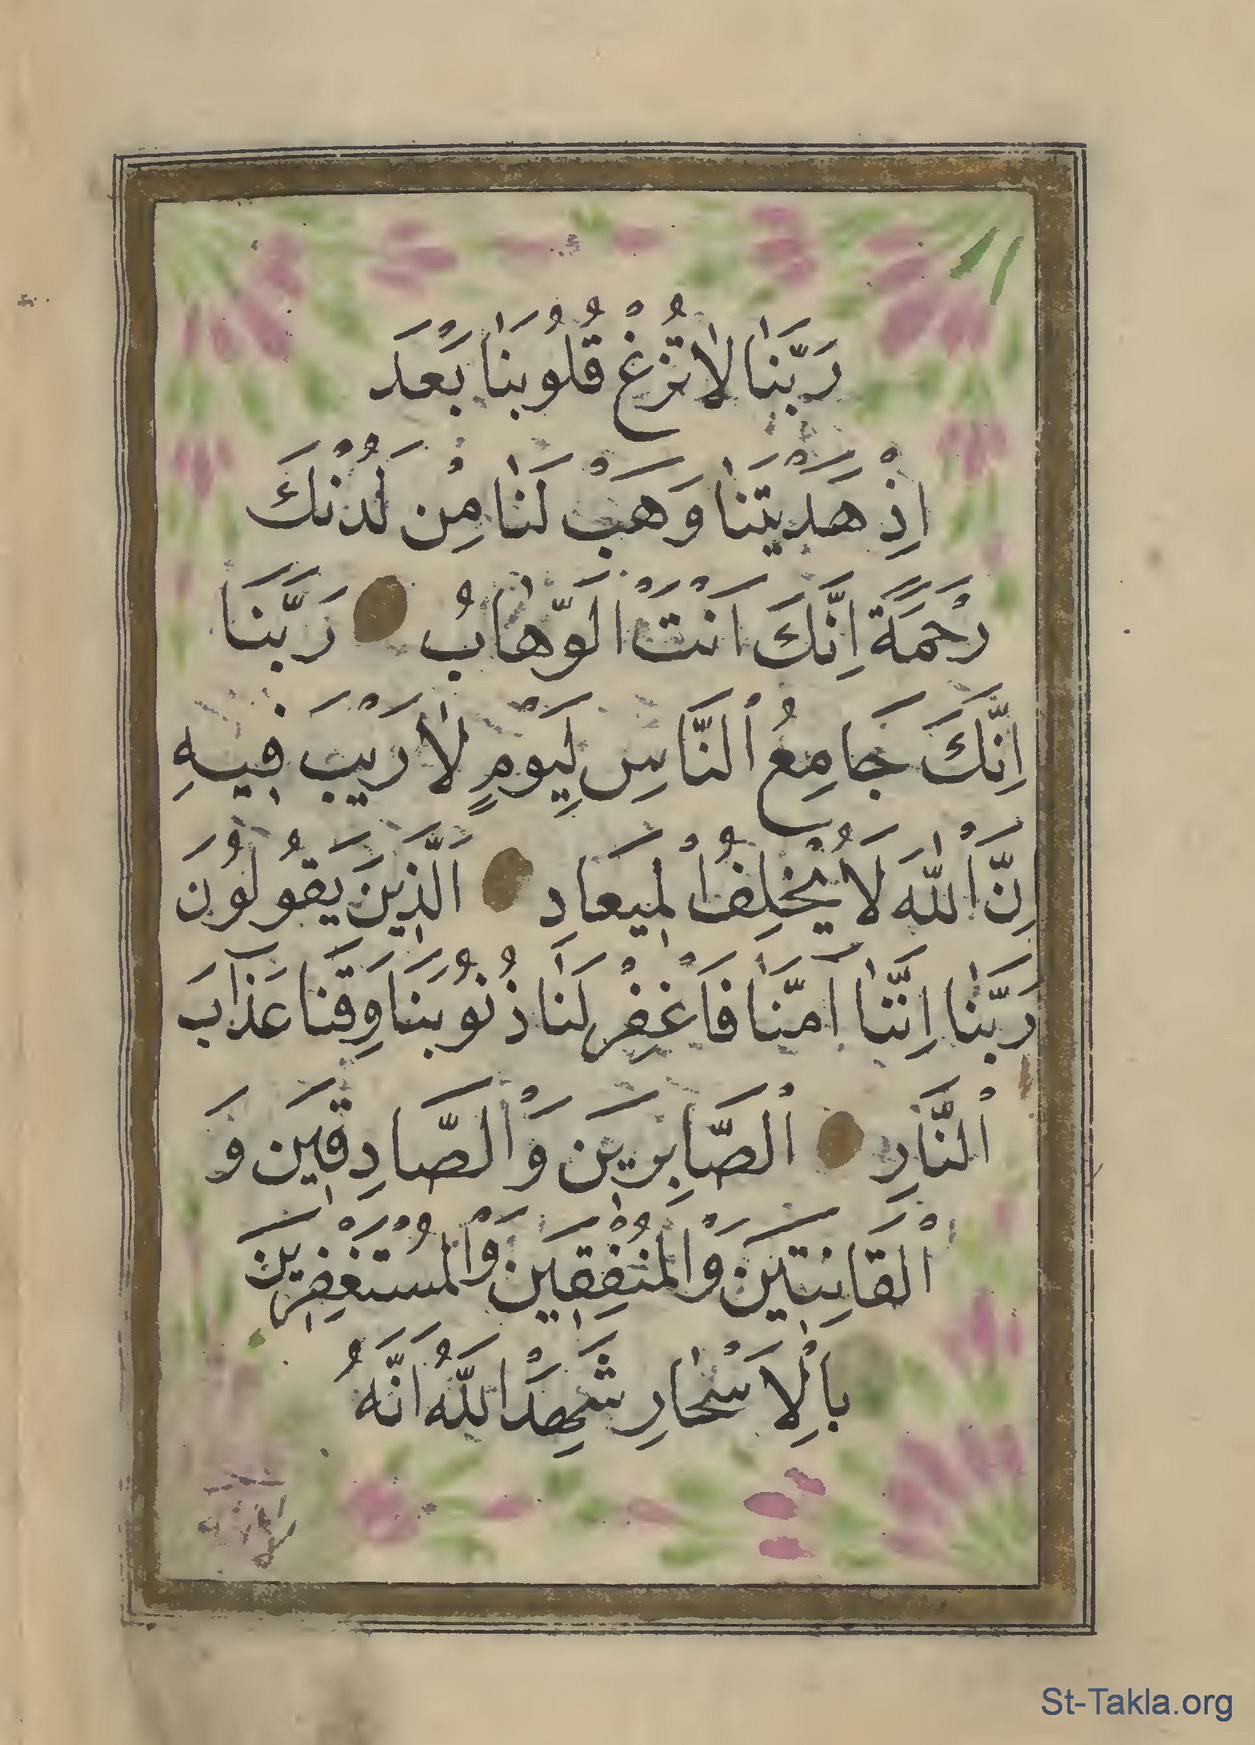 رَبَّنَا لَا تُزِغْ قُلُوبَنَا بَعْدَ
اِذْ هَدَيْتَنَا وَهَبْ لَنَا مِنْ لَدُنْكَ
رَحْمَةً اِنَّكَ اَنْتَ الْوَهَّابُ رَبَّنَا
اِنَّكَ جَامِعُ النَّاسِ لِيَوْمٍ لَا رَيْبَ فِيهِ
اِنَّ اللّٰهَ لَا يُخْلِفُ الْمِيعَادِ اَلَّذِينَ يَقُولُونَ
رَبَّنَا اِنَّنَا آمَنَّا فَاغْفِرْ لَنَا ذُنُوبَنَا وَقِنَا عَذَابَ
النَّارِ اَلصَّابِرِينَ وَالصَّادِقِينَ وَ
الْقَانِتِينَ وَالْمُنْفِقِينَ وَالْمُسْتَغْفِرِينَ
بِالْاَسْحَارِ شَهِدَ اللّٰهُ اَنَّهُ
St-Takla.org